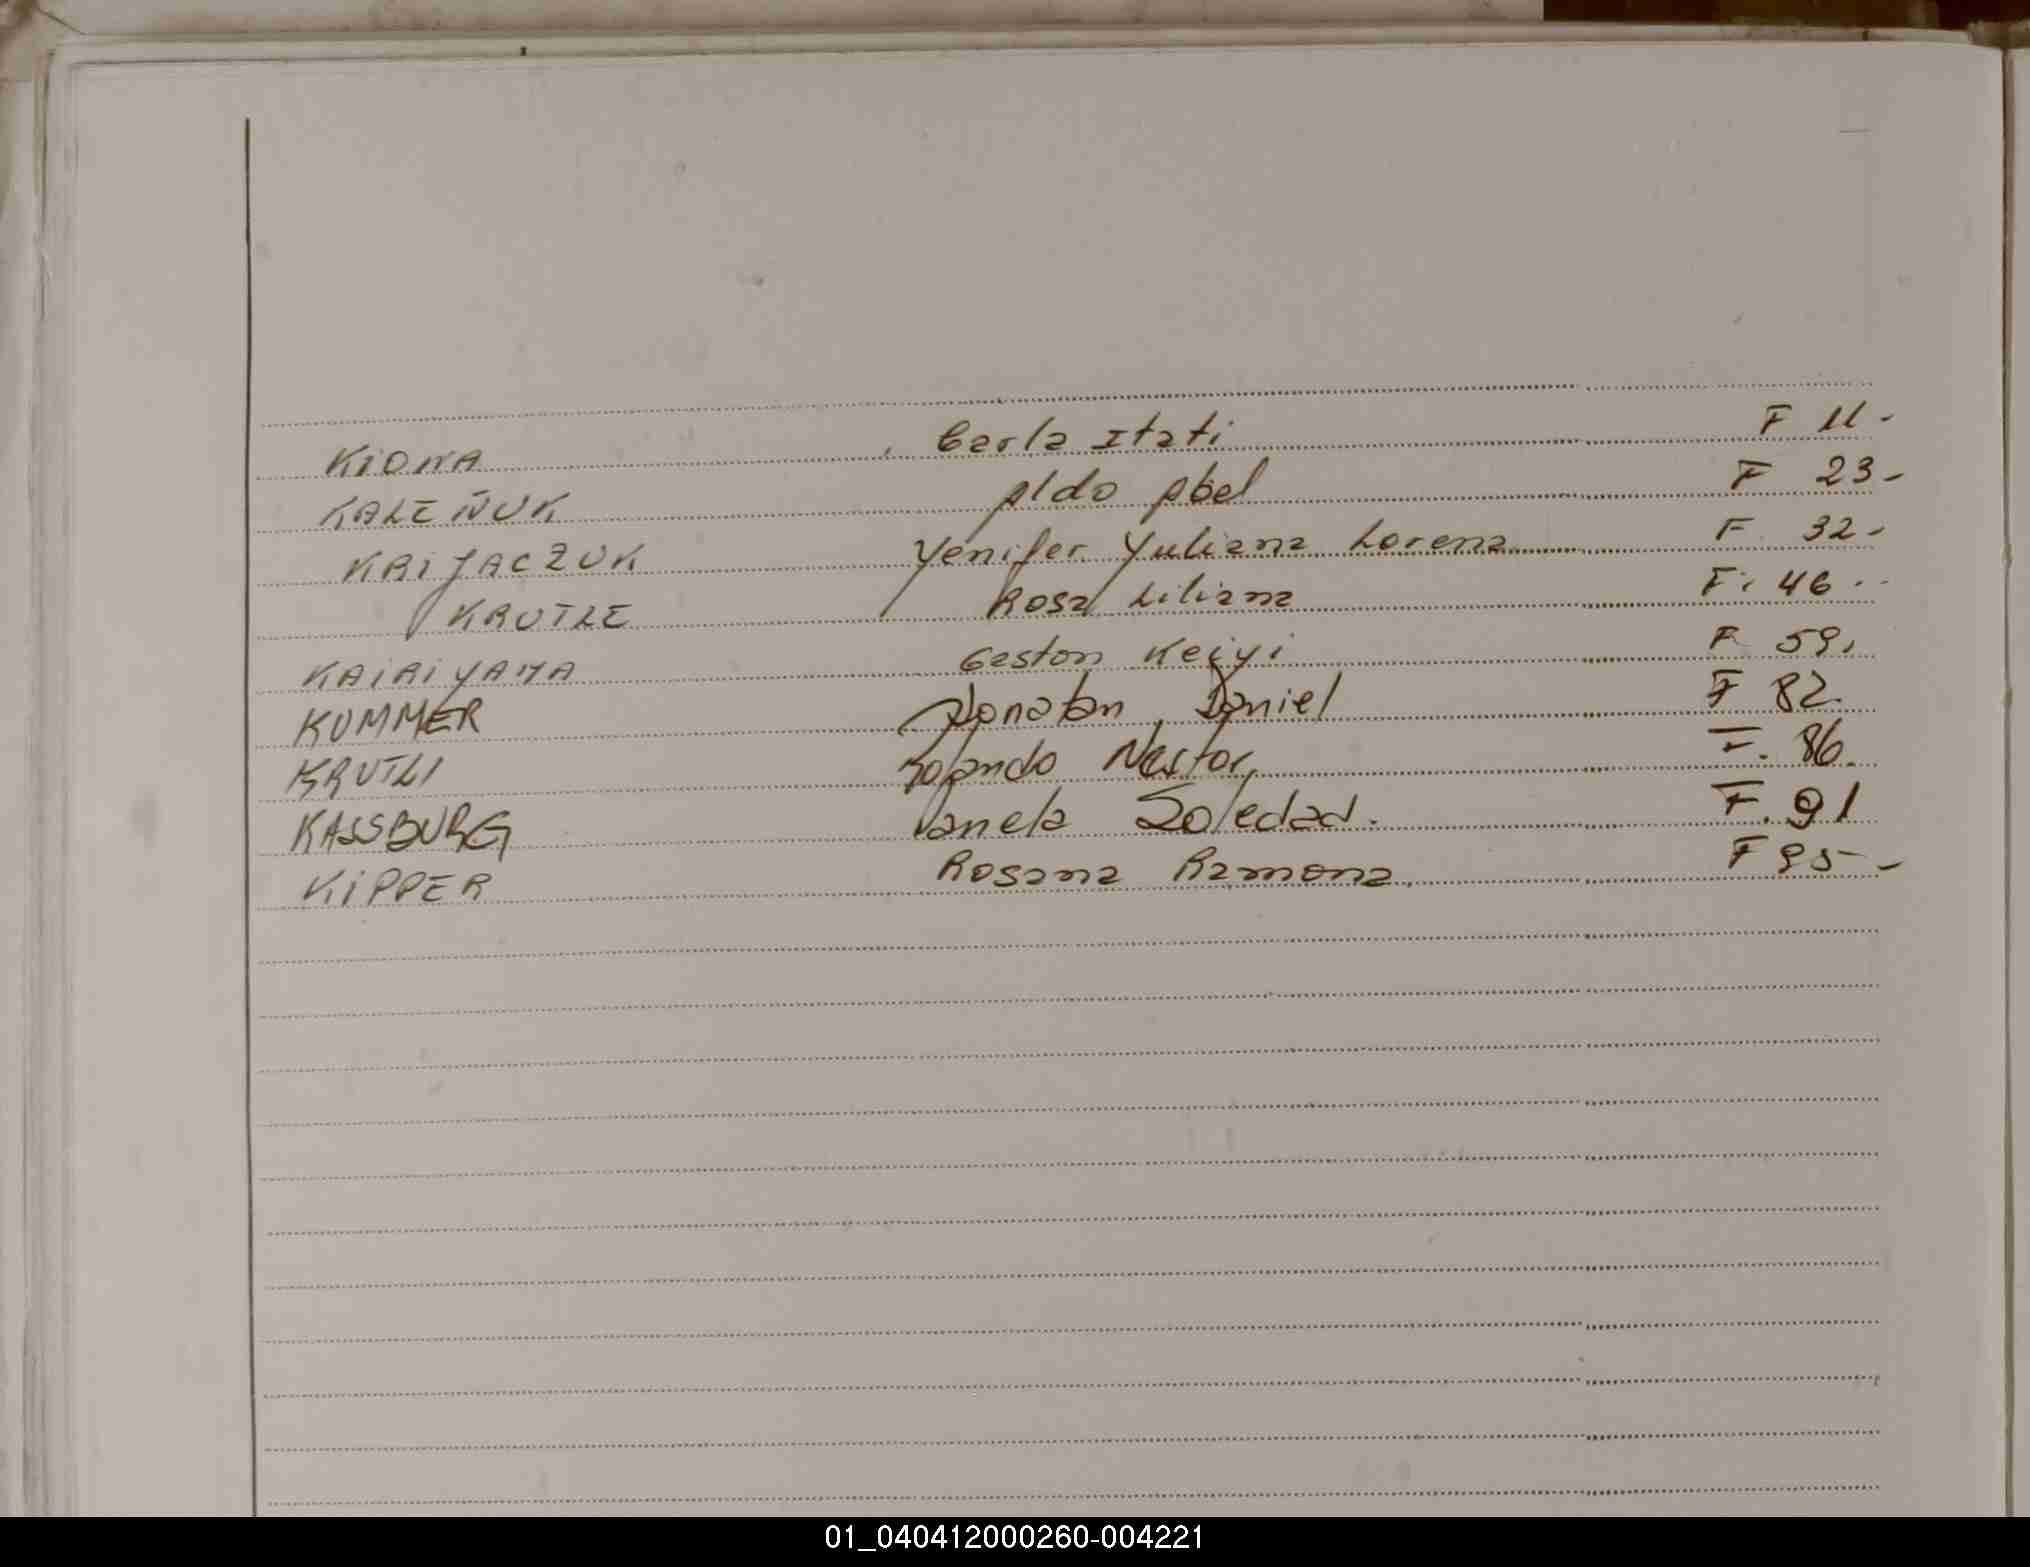 KIONA Carla Itati F 11-
KALEÑUK Aldo Abel F 23-
KRIJACZUK Yenifer Yuliana Lorena F 32-
KRUTLE Rosa Liliana F. 46
KAIRIYAMA Gaston Keiyi F 59.
KUMMER Jonatan Daniel F 82.
KRUTLI Rolando Nestor F. 86.
KASSBURG Vanela Soledad. F. 91
KIPPER Rosana Ramona F 95-
01_040412000260-004221